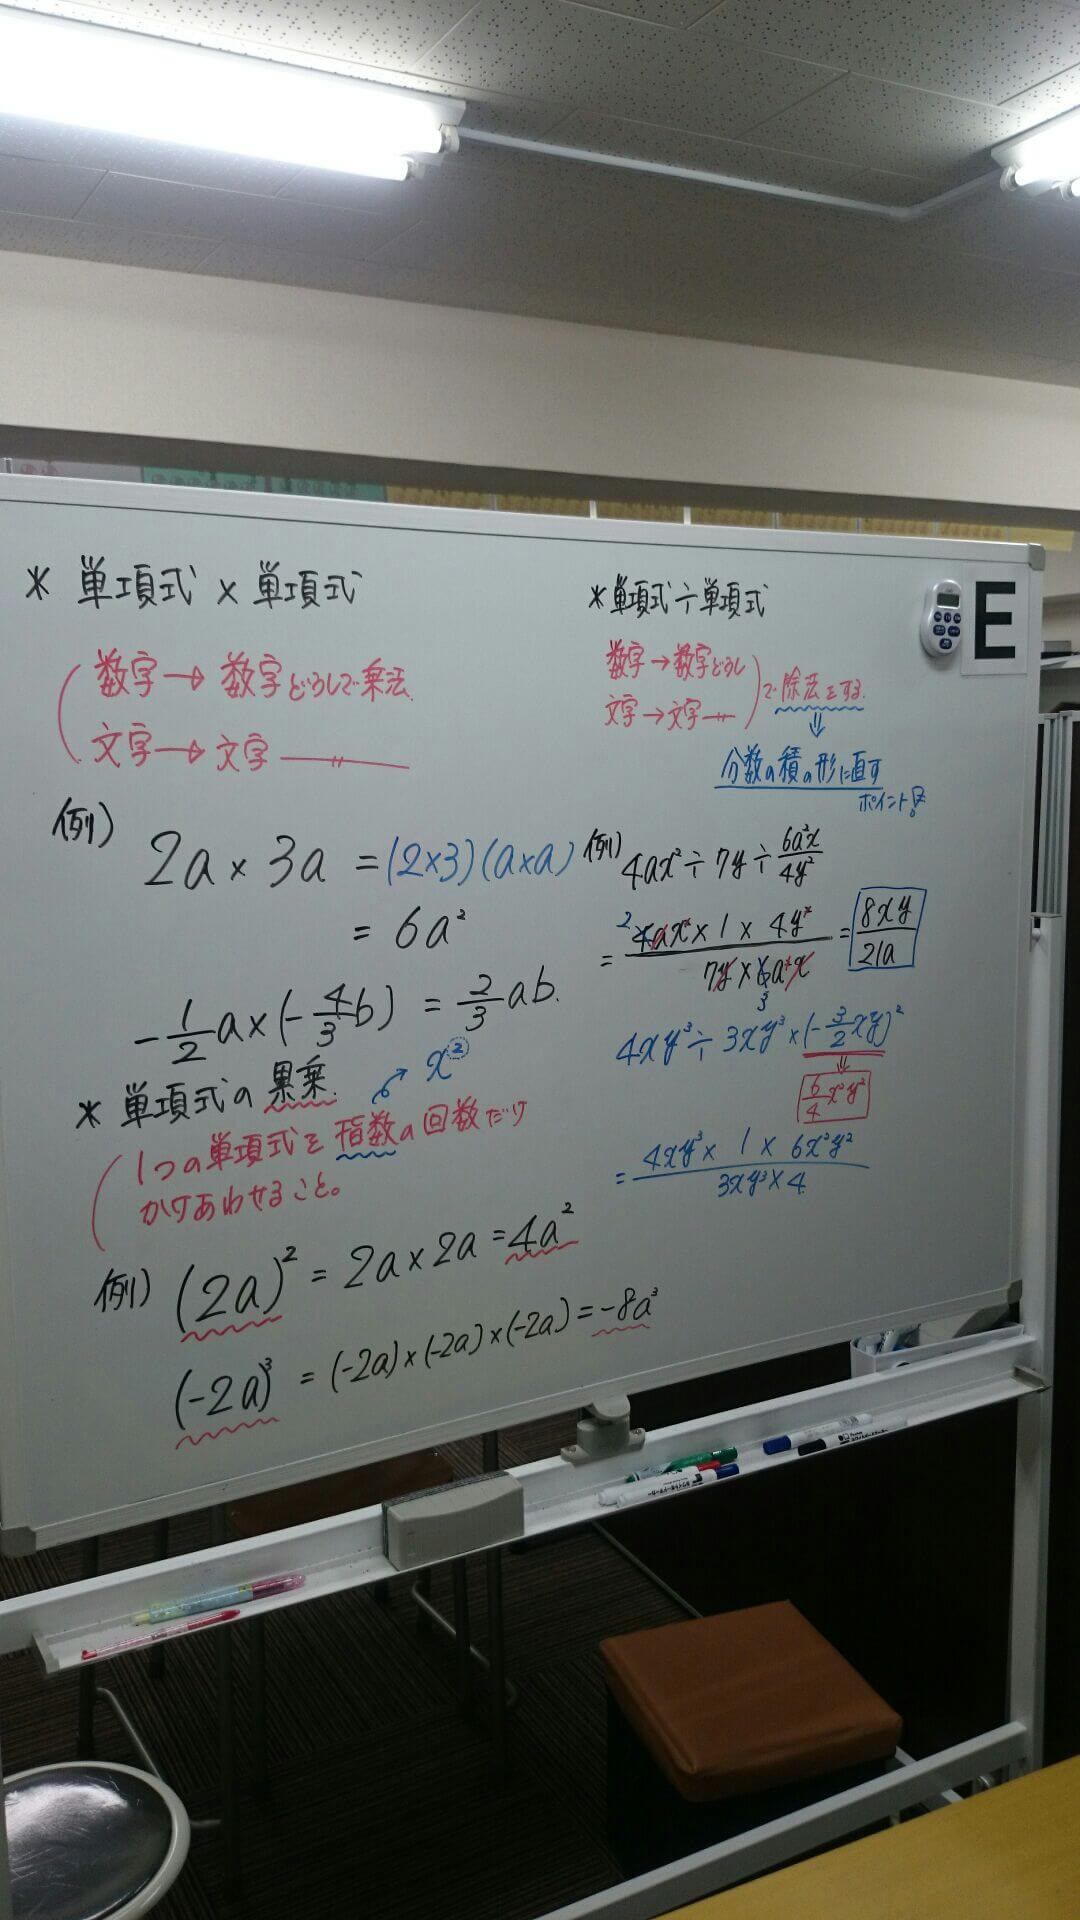 * 単項式 × 単項式
数字 → 数字どうしで乗法.
文字 → 文字 ―〃―
例) 2a × 3a = (2×3)(a×a)
= 6a²
-1/2 a × (-4/3 b) = 2/3 ab.
* 単項式の累乗.
x②
1つの単項式を指数の回数だけ
かけあわせること。
例) (2a)² = 2a × 2a = 4a²
(-2a)³ = (-2a)×(-2a)×(-2a) = -8a³
* 単項式÷単項式
数字 → 数字どうし
文字 → 文字 ―〃―
で除法をする.
⇓
分数の積の形に直す
ポイント!!
例) 4ax² ÷ 7y ÷ 6a²x/4y²
= 2 4ax² × 1 × 4y² / 7y × 6a²x 3 = 8xy/21a
4xy³ ÷ 3xy³ × (-3/2 xy)²
⇓
6/4 x²y²
= 4xy³ × 1 × 6x²y² / 3xy³ × 4
E